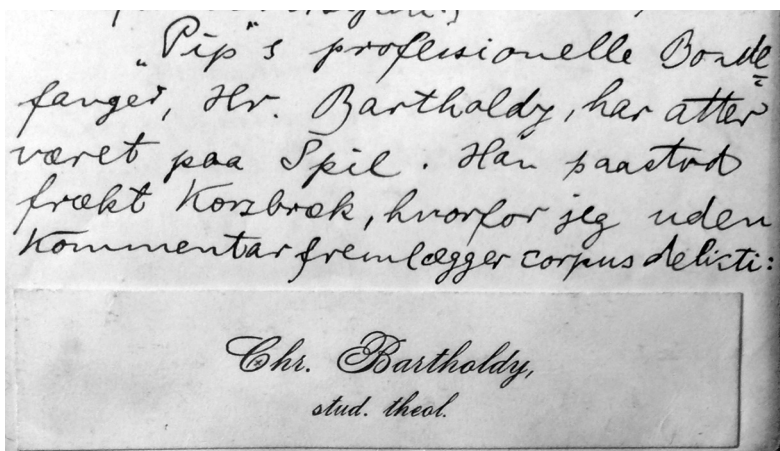 „Pip“s professionelle Bonde=
fanger, Hr. Bartholdy, har atter
været paa Spil. Han paastod
frækt Korsbræk, hvorfor jeg uden
Kommentar fremlægger corpus delicti:
Chr. Bartholdy,
stud. theol.